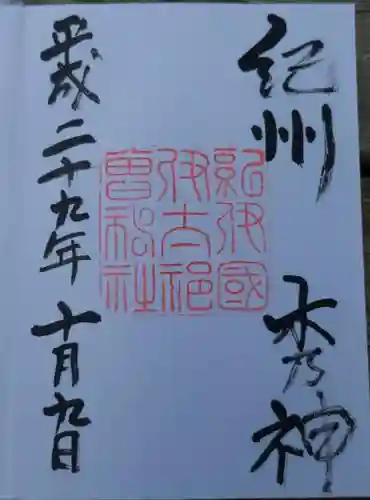 紀州 木乃神
紀伊國
伊太祁
曽神社
平成二十九年十月九日